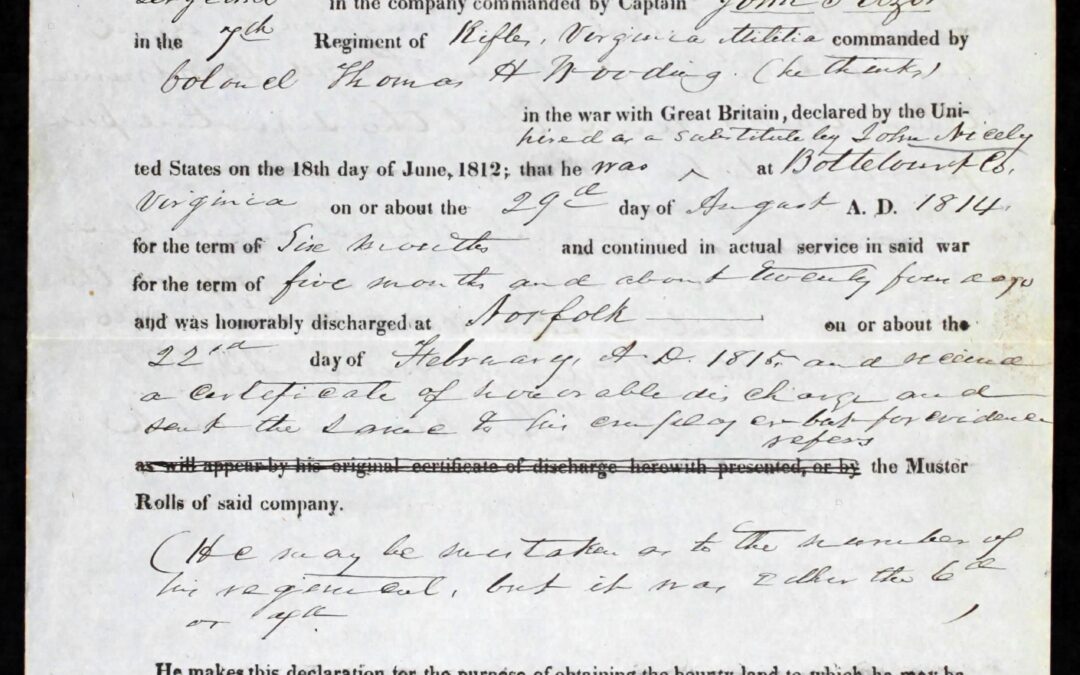 in the company commanded by Captain John
in the 7th Regiment of Rifles, Virginia Militia commanded by
Colonel Thomas H Wooding. (he thinks)
in the war with Great Britain, declared by the Uni-
hired as a substitute by John Nicely
ted States on the 18th day of June, 1812; that he was ^ at Bottetourt Co,
Virginia on or about the 29th day of August A. D. 1814.
for the term of Six months and continued in actual service in said war
for the term of five months and about twenty four days
and was honorably discharged at Norfolk on or about the
22nd day of February, A. D. 1815. and received
a certificate of honorable discharge and
sent the same to his employer but for evidence
refers
as will appear by his original certificate of discharge herewith presented, or by the Muster
Rolls of said company.
(He may be mistaken as to the number of
his regiment, but it was either the 6th
or 7th)
He makes this declaration for the purpose of obtaining the bounty land to which he may be